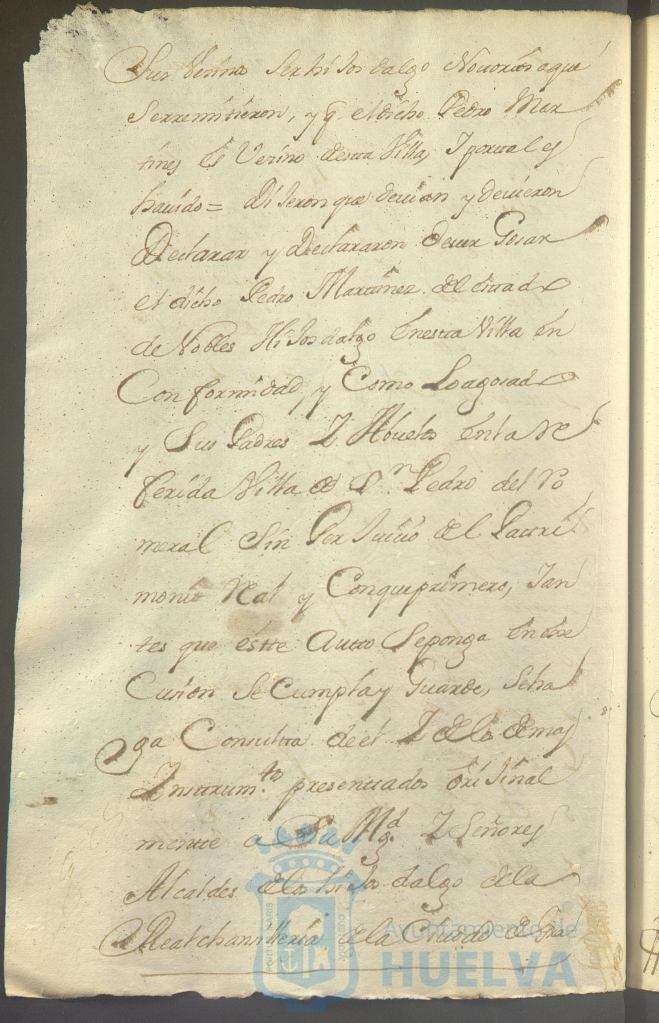 Sus Vesino ser hi Jos dalgo Notorios aqui
Serremitieron, y q̃ el dicho Pedro Mar
tines Es Vesino desta Villa, I por tal es
havido = Di Jeron que devian y devieron
Declarar y declararon devar Gosar
el dicho Pedro Martines del estado
de Nobles Hi Jos dalgo Enesta Villa en
Conformidad, y Como Loagosado
y Sus Padres I Abuelos Enla Re
ferida Villa de Sn. Pedro del Ro
meral Sin Per Juicio del Patri
monio Real y Conqueprimero, I an
tes que este Autto Seponga En exe
Cusion Se Cumpla y Guarde, Seha
ga Consulta deel I delos demas
Instrum.tos presentados Ori Jinal
mente a Su Mgd. I Señores
Alcaldes delos hi Jos dalgo dela
Realchansilleria dela Ciudad de Gra
Ayuntamiento de
HUELVA